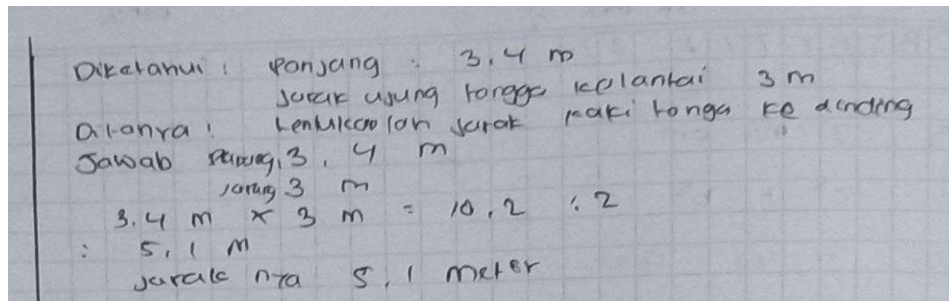 Diketahui : Panjang : 3,4 m
Jarak ujung tangga kelantai 3 m
Ditanya : tentukan lah jarak kaki tangga ke dinding
Jawab 3,4 m
3 m
3,4 m x 3 m = 10,2 : 2
: 5,1 m
Jarak nya 5,1 meter